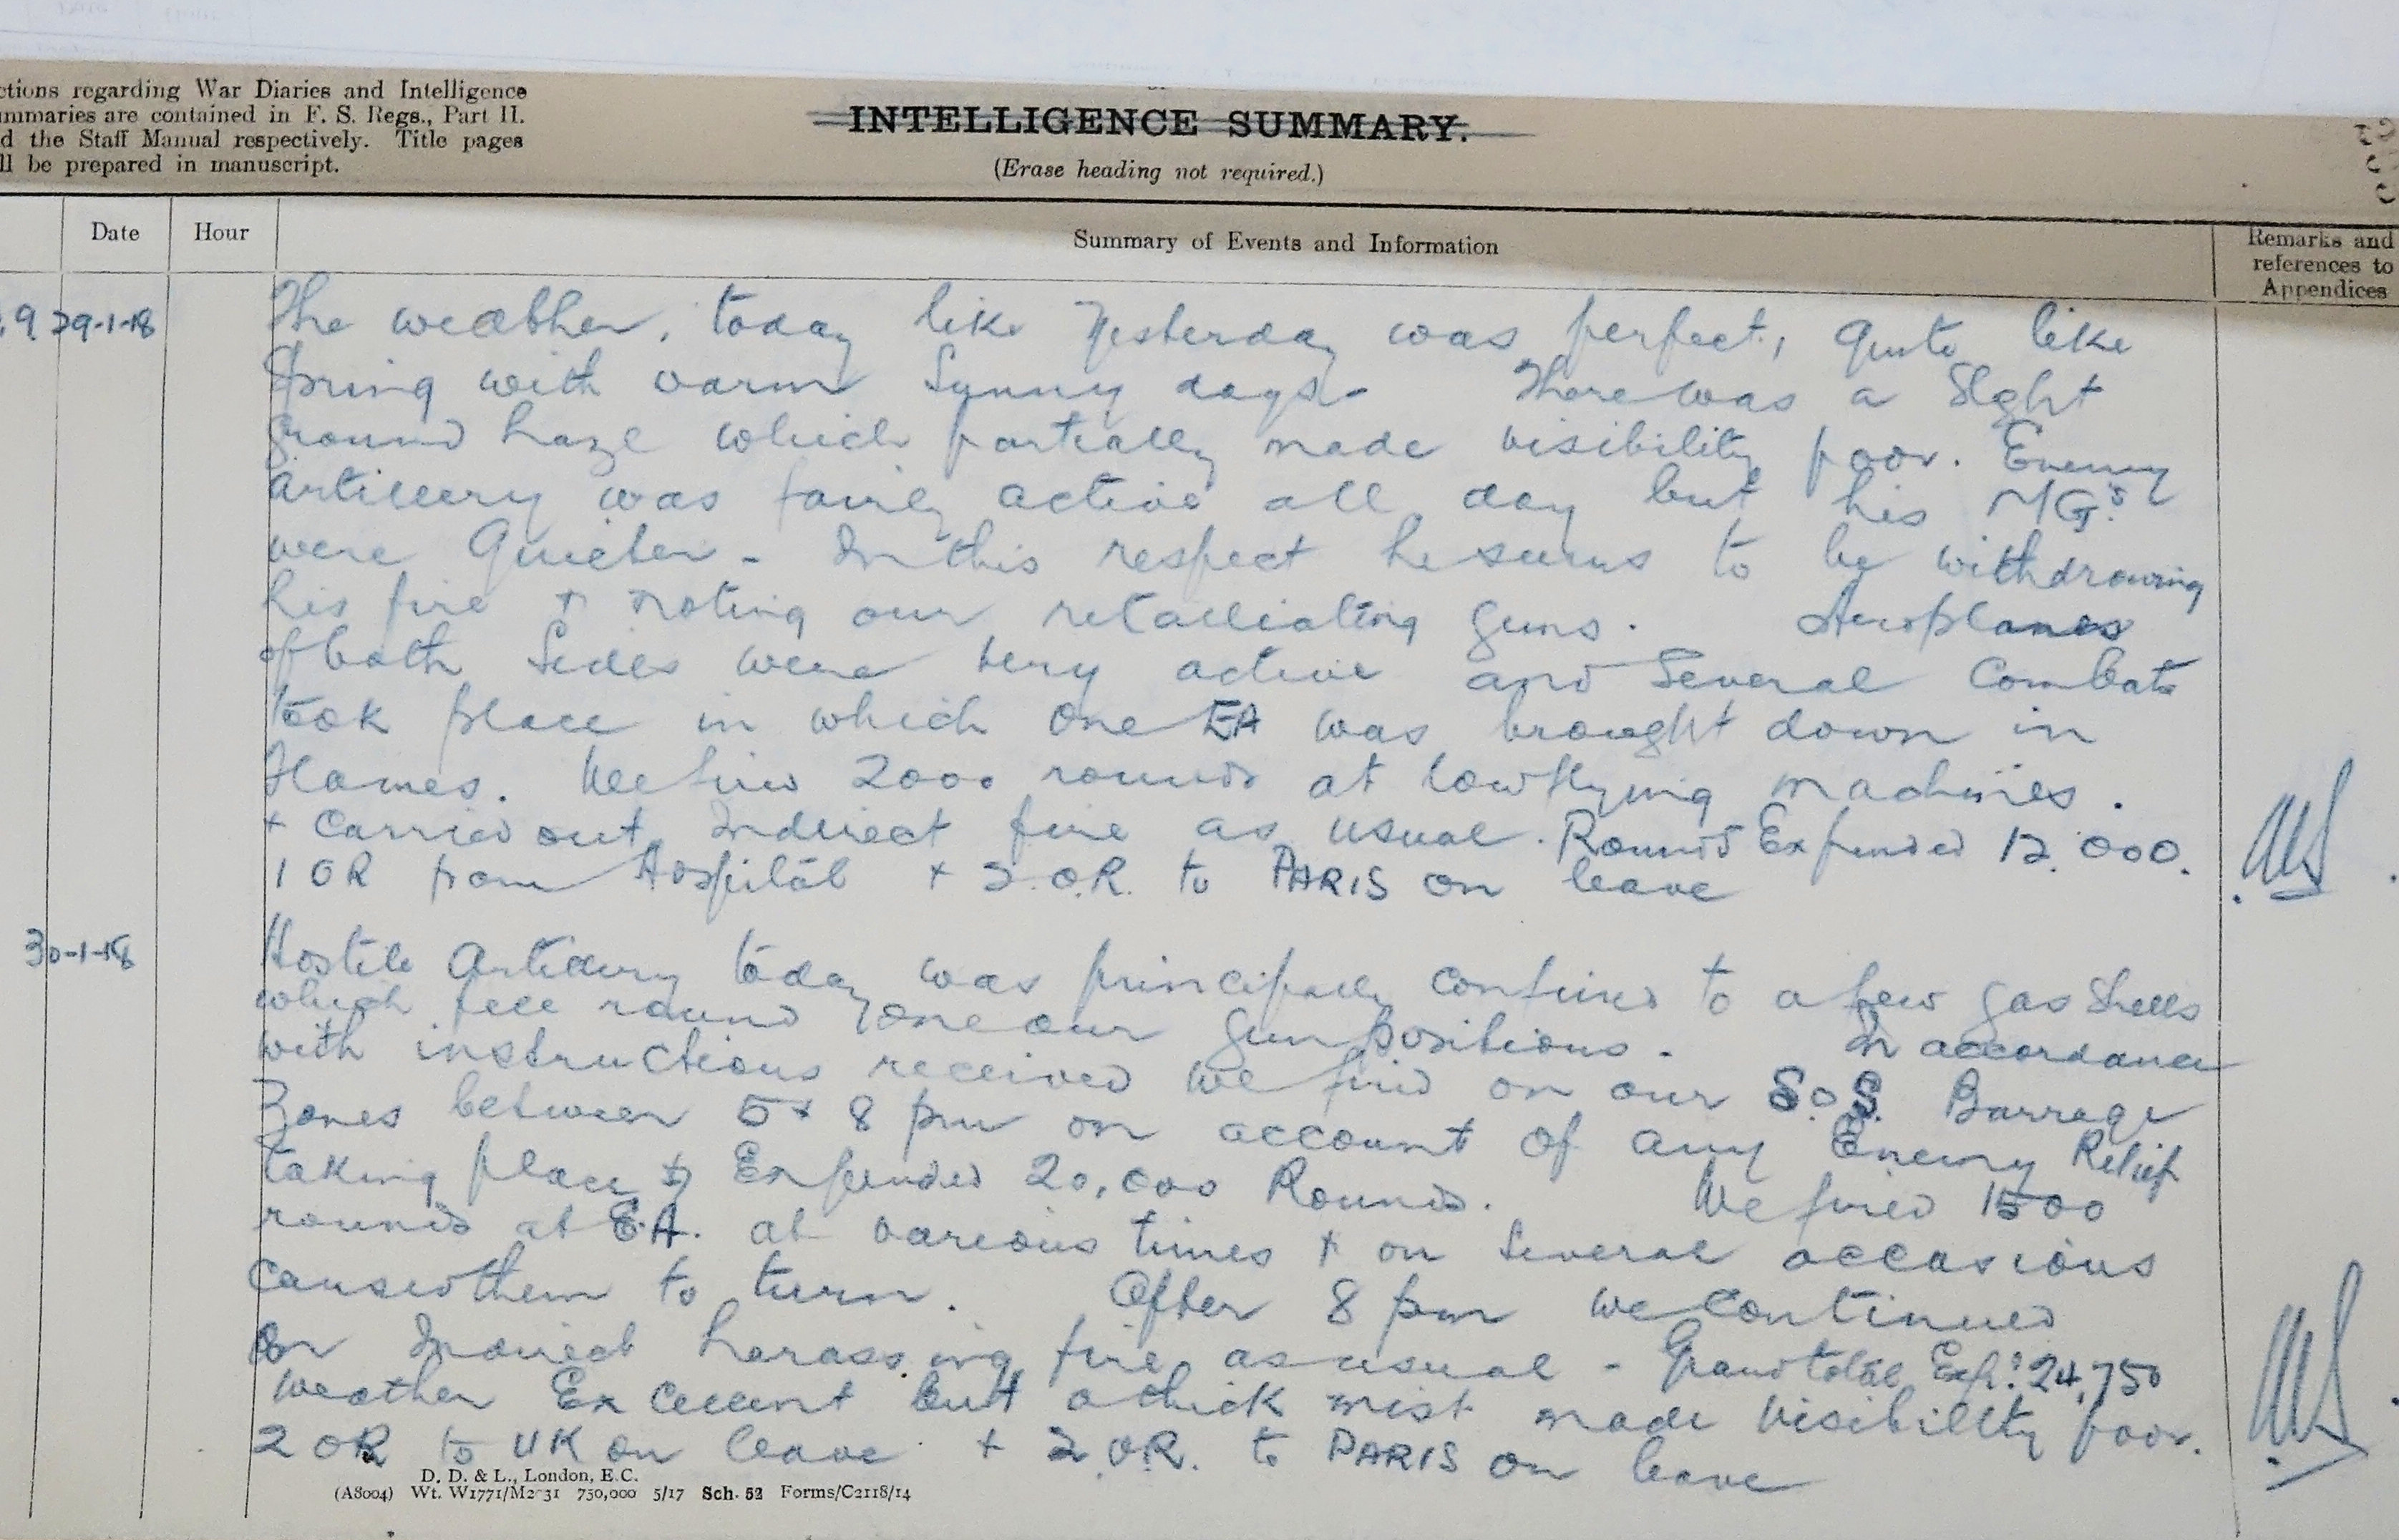 ctions regarding War Diaries and Intelligence
ummaries are contained in F. S. Regs., Part II.
d the Staff Manual respectively. Title pages
ll be prepared in manuscript.
INTELLIGENCE SUMMARY.
(Erase heading not required.)
Date Hour Summary of Events and Information Remarks and references to Appendices
29-1-18 The weather, today like Yesterday was perfect, quite like
Spring with warm Sunny days. There was a slght
ground haze which partially made visibility poor. Enemy
artillery was fairly active all day but his MGs
were Quieter - In this respect he seems to be withdrawing
his fire + noting our retalliating guns. Aeroplanes
of both Sides were very active and Several Combats
took place in which one EA was brought down in
flames. We fired 2000 rounds at low flying machines.
+ Carried out Indirect fire as usual. Rounds Expended 12,000.
1 OR from Hospital + 2.O.R. to PARIS on leave
30-1-18 Hostile Artillery today was principally confined to a few gas shells
which fell round our gun positions. In accordance
with instructions received we fired on our S.O.S. Barrage
Zones between 5 + 8 pm on account of any Enemy Relief
taking place & Expended 20,000 Rounds. We fired 1500
rounds at E.A. at various times + on Several occasions
caused them to turn. After 8 pm we continued
our Indirect harassing fire as usual - Grand total Exp: 24,750
Weather Excellent but a thick mist made visibility poor.
2 OR to UK on leave + 2.O.R. to PARIS on leave
D. D. & L., London, E.C.
(A8004) Wt. W1771/M2 31 750,000 5/17 Sch. 52 Forms/C2118/14